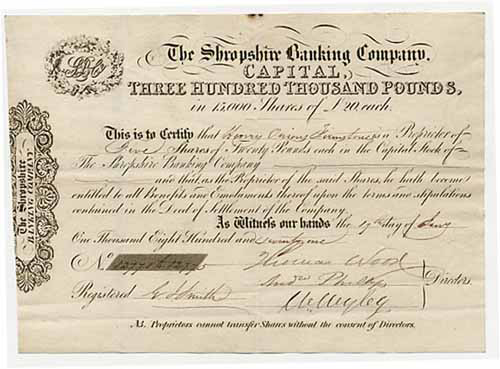 SBC
The Shropshire Banking Company.
CAPITAL,
THREE HUNDRED THOUSAND POUNDS,
in 15,000 Shares of £20, each.
This is to Certify that Henry is Proprietor of
Five Shares of Twenty Pounds each in the Capital Stock of
The Shropshire Banking Company
and that as the Proprietor of the said Shares, he hath become
entitled to all Benefits and Emoluments thereof upon the terms and stipulations
contained in the Deed of Settlement of the Company.
As Witness our hands the day of
One Thousand Eight Hundred and
No.
Thomas Wood
Phillips
Directors.
Registered Smith
NB. Proprietors cannot transfer Shares without the consent of Directors.
The Shropshire
BANKING COMPANY